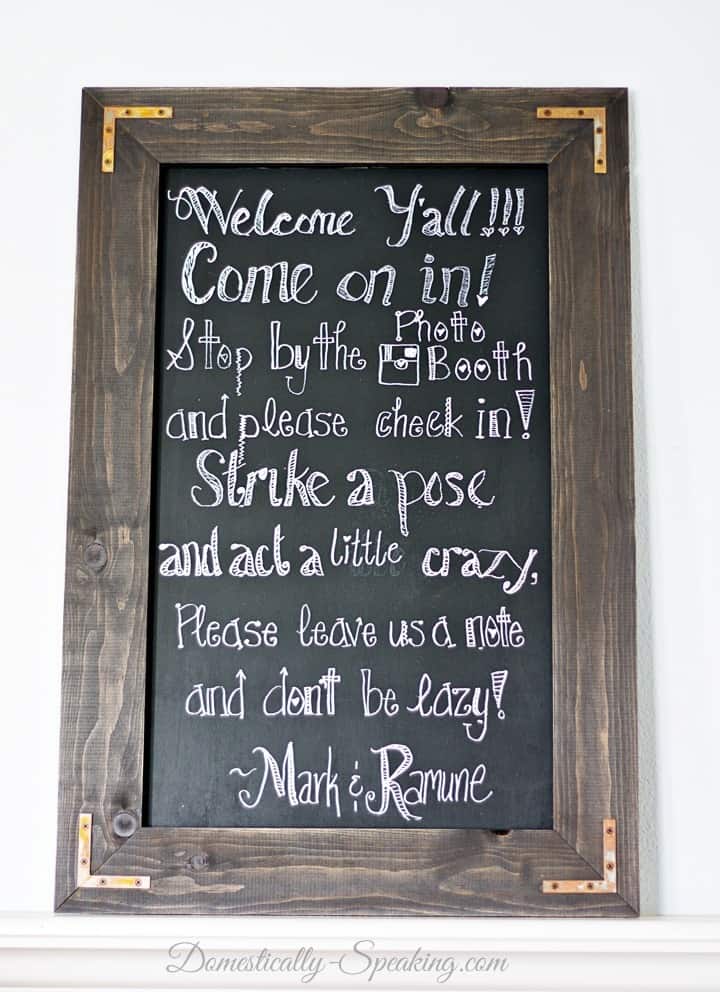 Welcome Y'all!!!
Come on in!
Stop by the Photo Booth
and please check in!
Strike a pose
and act a little crazy,
Please leave us a note
and don't be lazy!
~Mark & Ramune
Domestically-Speaking.com